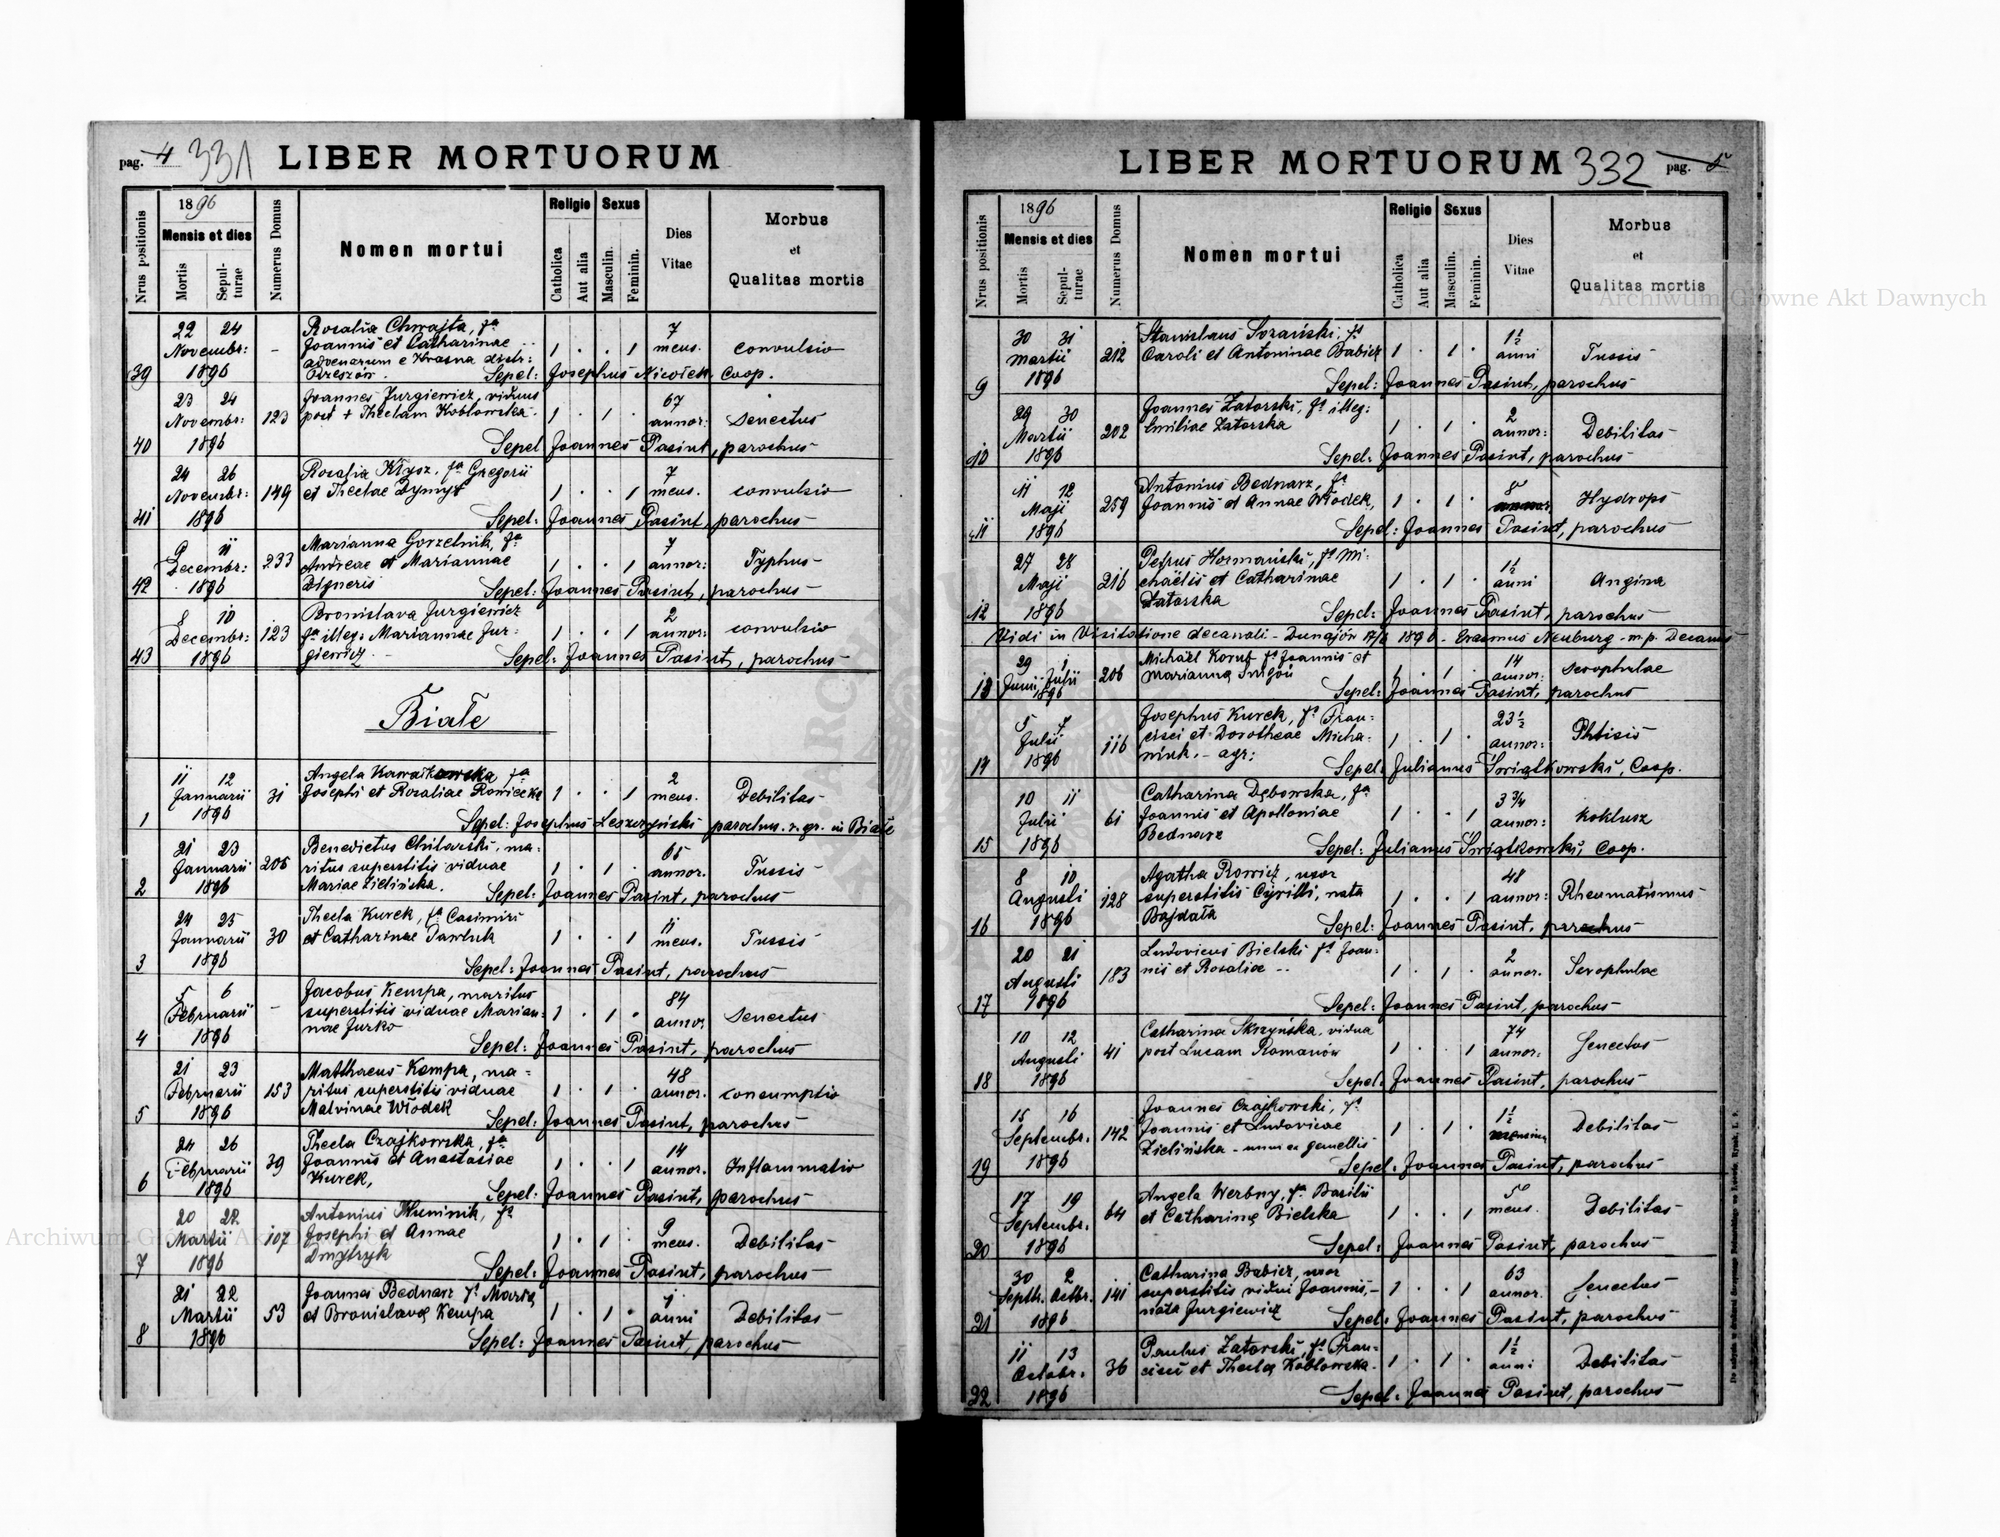 pag. 4 331 LIBER MORTUORUM
Nrus positionis
1896
Mensis et dies
Mortis
Sepulturae
Numerus Domus
Nomen mortui
Religio
Catholica
Aut alia
Sexus
Masculin.
Feminin.
Dies
Vitae
Morbus
et
Qualitas mortis
39 22 24 Novembr: 1896 – Rosalia Chwajta, fa
Joannis et Catharinae
advenarum e Krasna distr:
Rzeszów. 1 . . 1 7 mens. convulsio
Sepel: Josephus Nicołek, Coop.
40 23 24 Novembr: 1896 123 Joannes Jurgiewicz, viduus
post + Theclam Kobłowska 1 . 1 . 67 annor: Senectus
Sepel Joannes Pasiut, parochus
41 24 26 Novembr: 1896 149 Rosalia Kłysz, fa Gregorii
et Theclae Dymyt 1 . . 1 7 mens. convulsio
Sepel: Joannes Pasiut, parochus
42 9 11 Decembr: 1896 233 Marianna Gorzelnik, fa
Andreae et Mariannae
Zigneris 1 . . 1 7 annor: Typhus
Sepel: Joannes Pasiut, parochus
43 8 10 Decembr: 1896 123 Bronislava Jurgiewicz
fa illeg: Mariannae Jur-
giewicz 1 . . 1 2 annor: convulsio
Sepel: Joannes Pasiut, parochus
Białe
1 11 12 Januarii 1896 31 Angela fa
Josephi et Rosaliae Rowicka 1 . . 1 2 mens. Debilitas
Sepel: Josephus Leszczyński parochus r. gr. in Białe
2 21 23 Januarii 1896 205 Benedictus ma-
ritus superstitis viduae
Mariae Zielińska. 1 . 1 . 65 annor. Tussis
Sepel: Joannes Pasiut, parochus
3 24 25 Januarii 1896 30 Thecla Kurek, fa Casimiri
et Catharinae Pawluk 1 . . 1 11 mens. Tussis
Sepel: Joannes Pasiut, parochus
4 5 6 Februarii 1896 – Jacobus Kempa, maritus
superstitis viduae Marian-
nae Jurko 1 . 1 . 84 annor. Senectus
Sepel: Joannes Pasiut, parochus
5 21 23 Februarii 1896 153 Matthaeus Kempa, ma-
ritus superstitis viduae
Malvinae Włodek 1 . 1 . 48 annor. consumptio
Sepel: Joannes Pasiut, parochus
6 24 26 Februarii 1896 39 Thecla Czajkowska, fa
Joannis et Anastasiae
Kurek, 1 . . 1 14 annor. Inflammatio
Sepel: Joannes Pasiut, parochus
7 20 22 Martii 1896 107 Antonius fs
Josephi et Annae
Dmytryk 1 . 1 . 9 mens. Debilitas
Sepel: Joannes Pasiut, parochus
8 21 22 Martii 1896 53 Joannes Bednarz fs
et Bronislavae Kempa 1 . 1 . 1 anni Debilitas
Sepel: Joannes Pasiut, parochus
LIBER MORTUORUM 332 pag. 5
Nrus positionis
1896
Mensis et dies
Mortis
Sepulturae
Numerus Domus
Nomen mortui
Religio
Catholica
Aut alia
Sexus
Masculin.
Feminin.
Dies
Vitae
Morbus
et
Qualitas mortis
9 30 31 Martii 1896 212 Stanislaus fs
Caroli et Antoninae Babicz 1 . 1 . 1½ anni Tussis
Sepel: Joannes Pasiut, parochus
10 29 30 Martii 1896 202 Joannes Zatorski, fs illeg:
Emiliae Zatorska 1 . 1 . 2 annor: Debilitas
Sepel: Joannes Pasiut, parochus
11 11 12 Maji 1896 259 Antonius Bednarz, fs
Joannis et Annae Włodek, 1 . 1 . 8 Hydrops
Sepel: Joannes Pasiut, parochus
12 27 28 Maji 1896 216 Petrus Hormański, fs Mi-
chaëlis et Catharinae
Zatorska 1 . 1 . 1½ anni Angina
Sepel: Joannes Pasiut, parochus
Vidi in Visitatione decanali – Dunajów 17/6 1896 – Erasmus Neuburg – m.p. Decanus
13 29 1 Junii Julii 1896 206 Michaël Korub fs Joannis et
Marianna 1 . 1 . 14 annor: Scrophulae
Sepel: Joannes Pasiut, parochus
14 5 7 Julii 1896 116 Josephus Kurek, fs Fran-
cisci et Dorotheae Micha-
niuk, – agr: 1 . 1 . 23½ annor: Phtisis
Sepel: Julianus Swiątkowski, Coop.
15 10 11 Julii 1896 61 Catharina Dębowska, fa
Joannis et Apolloniae
Bednarz 1 . . 1 3¾ annor: Koklusz
Sepel: Julianus Swiątkowski, Coop.
16 8 10 Augusti 1896 128 Agatha Rowicz, uxor
superstitis Cyrilli, nata
Bajdała 1 . . 1 48 annor: Rheumatismus
Sepel: Joannes Pasiut, parochus
17 20 21 Augusti 1896 183 Ludovicus Bielski fs Joan-
nis et Rosaliae -- 1 . 1 . 2 annor. Scrophulae
Sepel: Joannes Pasiut, parochus
18 10 12 Augusti 1896 41 Catharina Skrzyńska, vidua
post Lucam Romanów 1 . . 1 74 annor: Senectus
Sepel: Joannes Pasiut, parochus
19 15 16 Septembr. 1896 142 Joannes Czajkowski, fs
Joannis et Ludovicae
Zielińska – unus ex gemellis 1 . 1 . 1½ Debilitas
Sepel: Joannes Pasiut, parochus
20 17 19 Septembr. 1896 64 Angela Werbny, fa Basilii
et Catharinae Bielska 1 . . 1 5 mens. Debilitas
Sepel: Joannes Pasiut, parochus
21 30 2 Septbr. Octbr. 1896 141 Catharina Babicz, uxor
superstitis vidui Joannis,
nata Jurgiewicz 1 . . 1 63 annor. Senectus
Sepel: Joannes Pasiut, parochus
22 11 13 Octobr. 1896 36 Paulus Zatorski, fs Fran-
cisci et Theclae Kobłowska 1 . 1 . 1½ anni Debilitas
Sepel: Joannes Pasiut, parochus
Archiwum Główne Akt Dawnych
Archiwum Główne Akt Dawnych